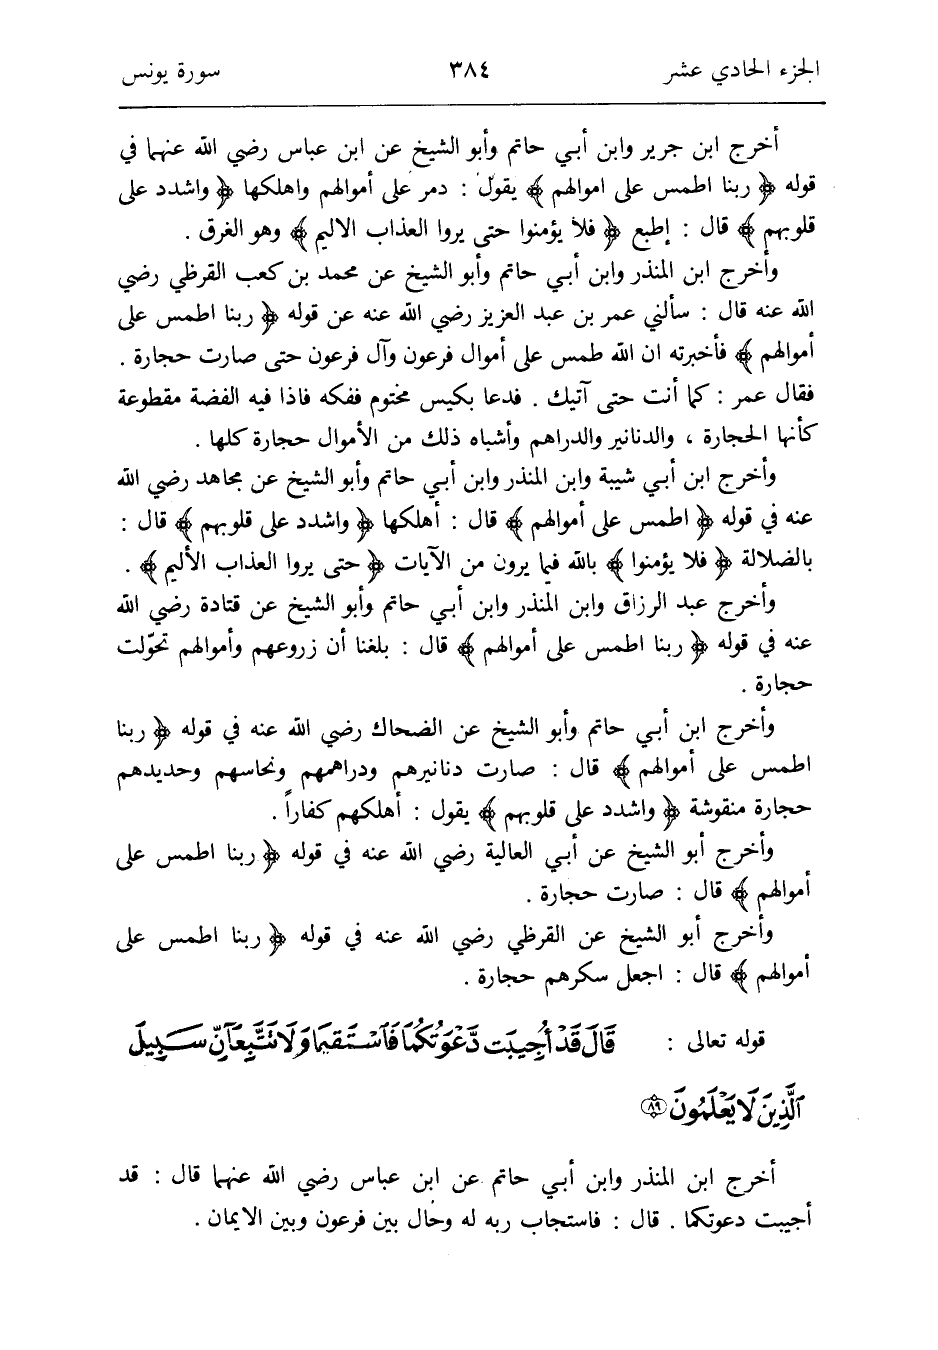 الجزء الحادي عشر
٣٨٤
سورة يونس
أخرج ابن جرير وابن أبي حاتم وأبو الشيخ عن ابن عباس رضي الله عنهما في
قوله ﴿ ربنا اطمس على اموالهم ﴾ يقول : دمر على أموالهم واهلكها ﴿ واشدد على
قلوبهم ﴾ قال : إطبع ﴿ فلا يؤمنوا حتى يروا العذاب الاليم ﴾ وهو الغرق .
وأخرج ابن المنذر وابن أبي حاتم وأبو الشيخ عن محمد بن كعب القرظي رضي
الله عنه قال : سألني عمر بن عبد العزيز رضي الله عنه عن قوله ﴿ ربنا اطمس على
أموالهم ﴾ فأخبرته ان الله طمس على أموال فرعون وآل فرعون حتى صارت حجارة .
فقال عمر : كما أنت حتى آتيك . فدعا بكيس مختوم ففكه فاذا فيه الفضة مقطوعة
كأنها الحجارة ، والدنانير والدراهم وأشباه ذلك من الأموال حجارة كلها .
وأخرج ابن أبي شيبة وابن المنذر وابن أبي حاتم وأبو الشيخ عن مجاهد رضي الله
عنه في قوله ﴿ اطمس على أموالهم ﴾ قال : أهلكها ﴿ واشدد على قلوبهم ﴾ قال :
بالضلالة ﴿ فلا يؤمنوا ﴾ بالله فيما يرون من الآيات ﴿ حتى يروا العذاب الأليم ﴾ .
وأخرج عبد الرزاق وابن المنذر وابن أبي حاتم وأبو الشيخ عن قتادة رضي الله
عنه في قوله ﴿ ربنا اطمس على أموالهم ﴾ قال : بلغنا أن زروعهم وأموالهم تحوّلت
حجارة .
وأخرج ابن أبي حاتم وأبو الشيخ عن الضحاك رضي الله عنه في قوله ﴿ ربنا
اطمس على أموالهم ﴾ قال : صارت دنانيرهم ودراهمهم ونحاسهم وحديدهم
حجارة منقوشة ﴿ واشدد على قلوبهم ﴾ يقول : أهلكهم كفاراً .
وأخرج أبو الشيخ عن أبي العالية رضي الله عنه في قوله ﴿ ربنا اطمس على
أموالهم ﴾ قال : صارت حجارة .
وأخرج أبو الشيخ عن القرظي رضي الله عنه في قوله ﴿ ربنا اطمس على
أموالهم ﴾ قال : اجعل سكرهم حجارة .
قوله تعالى : قَالَ قَدْ أُجِيبَت دَّعْوَتُكُمَا فَٱسْتَقِيمَا وَلَا تَتَّبِعَآنِّ سَبِيلَ
ٱلَّذِينَ لَا يَعْلَمُونَ ٨٩
أخرج ابن المنذر وابن أبي حاتم عن ابن عباس رضي الله عنهما قال : قد
أجيبت دعوتكما . قال : فاستجاب ربه له وحال بين فرعون وبين الايمان .